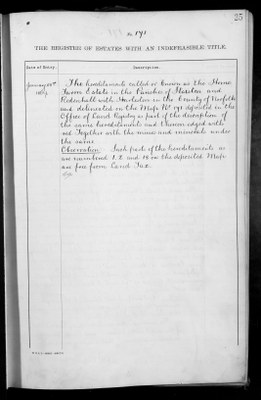 25
No. 171
THE REGISTER OF ESTATES WITH AN INDEFEASIBLE TITLE.
Date of Entry.
Description.
January
The hereditaments called or known as the Home
Farm Estate in the Parishes of and
Redenhall with Harleston in the County of Norfolk
and delineated on the Map No. 171 deposited in the
Office of Land Registry as part of the description of
the same hereditaments and thereon edged with
red Together with the mines and minerals under
the same
Observation Such parts of the hereditaments as
are numbered 1, 2 and on the deposited Map
are free from Land Tax.